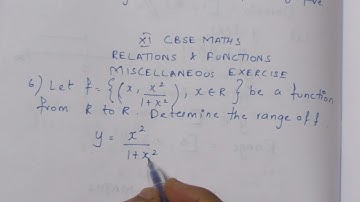 XI CBSE MATHS
RELATIONS & FUNCTIONS
MISCELLANEOUS EXERCISE
6) Let f = {(x, x²/1+x²), x ∈ R} be a function
from R to R. Determine the range of f.
y = x²/1+x²